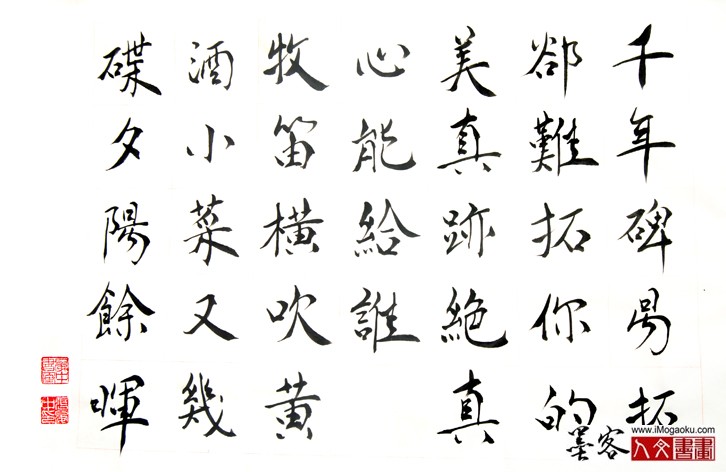 千年碑易拓
卻難拓你的
美真跡絕真
心能給誰
牧笛橫吹黃
酒小菜又幾
碟夕陽餘暉
墨客
www.iMogaoku.com
人文書畫